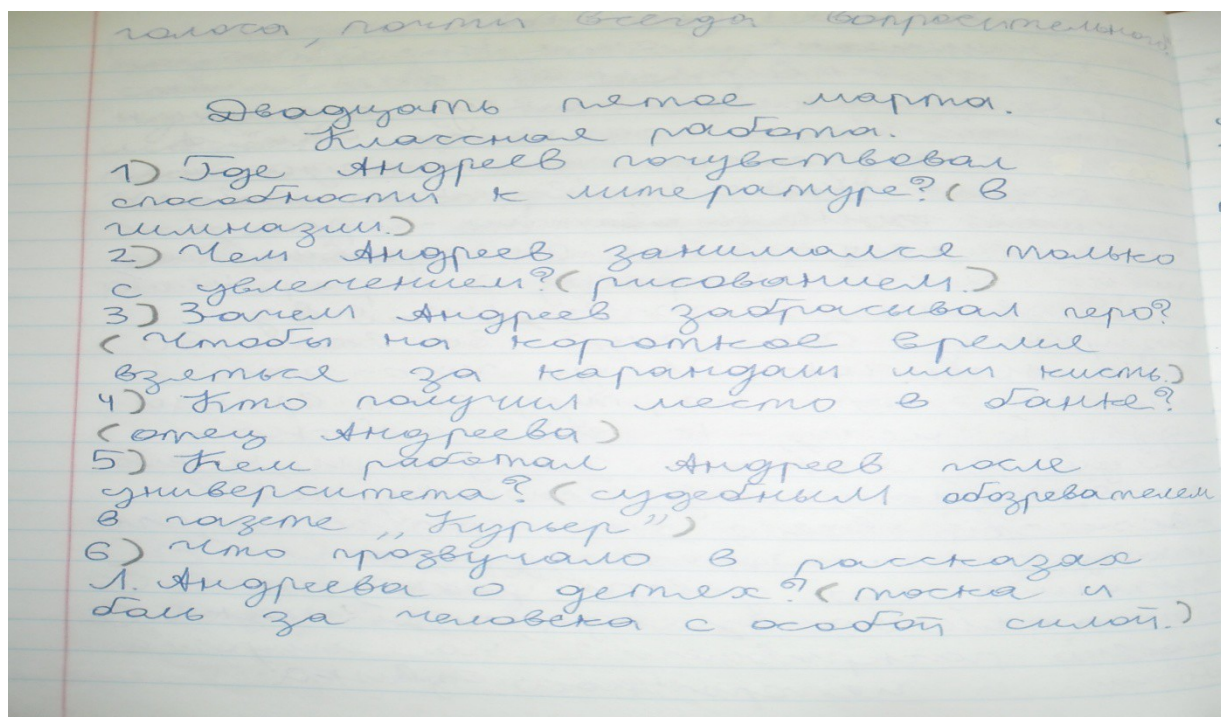 голоса, почти всегда вопросительного
Двадцать пятое марта.
Классная работа.
1) Где Андреев почувствовал
способности к литературе? (в
гимназии.)
2) Чем Андреев занимался только
с увлечением? (рисованием.)
3) Зачем Андреев забрасывал перо?
(Чтобы на короткое время
взяться за карандаш или кисть.)
4) Кто получил место в банке?
(отец Андреева)
5) Кем работал Андреев после
университета? (судебным обозревателем
в газете „Курьер”)
6) Что прозвучало в рассказах
Л. Андреева о детях? (тоска и
боль за человека с особой силой.)